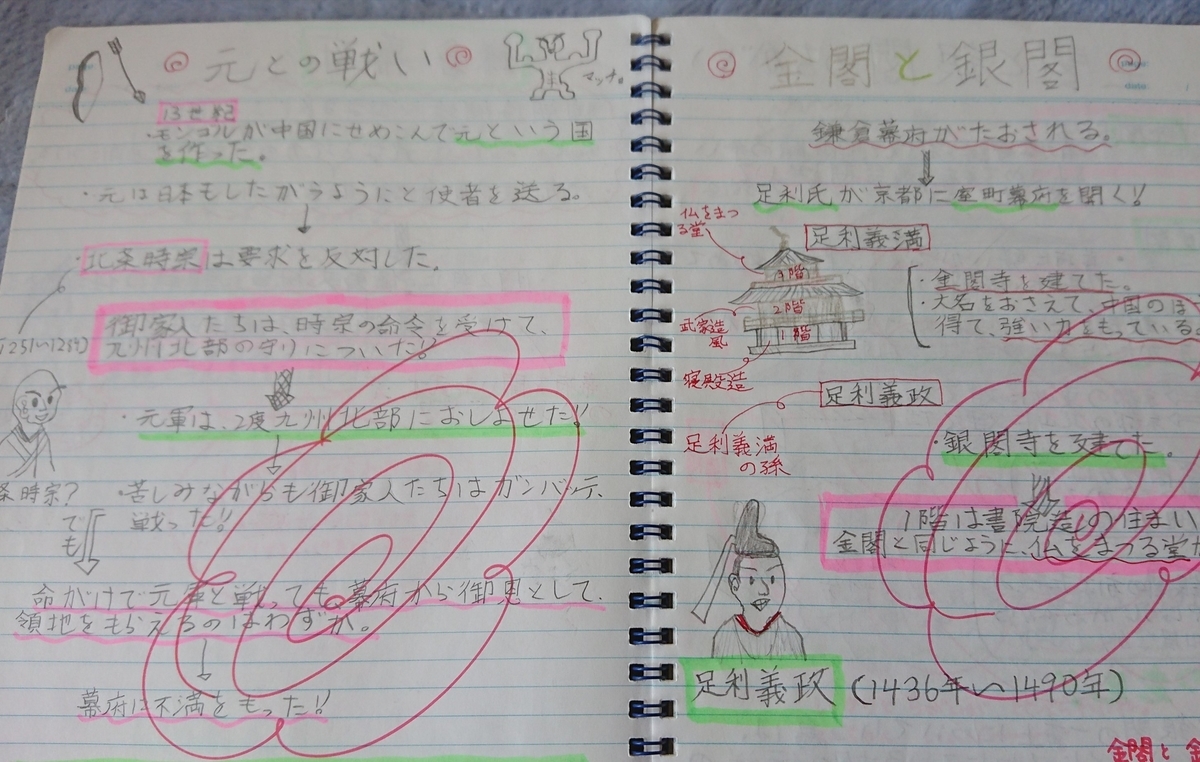 元との戦い
マッチョ
13世紀
・モンゴルが中国にせめこんで元という国
を作った。
・元は日本もしたがうようにと使者を送る。
・北条時宗は要求を反対した。
(1251〜1284)
御家人たちは、時宗の命令を受けて、
九州北部の守りについた!!
元軍は、2度九州北部におしよせた!!
条時宗?
・苦しみながらも御家人たちはガンバッテ、
戦った!!
でも
命がけで元軍と戦っても、幕府から御恩として、
領地をもらえるのはわずか。
幕府に不満をもった!!
金閣と銀閣
鎌倉幕府がたおされる。
足利氏が京都に室町幕府を開く!!
仏をまつ
る堂
足利義満
3階
2階
1階
武家造
風
寝殿造
・金閣寺を建てた。
・大名をおさえて、中国のほ
得て、強い力をもっている
足利義政
足利義満
の孫
・銀閣寺を建てた。
1階は書院造の住まい
金閣と同じように、仏をまつる堂
足利義政
(1436年〜1490年)
金閣と